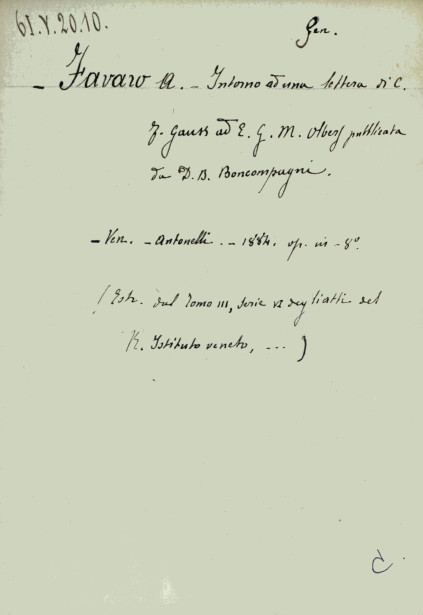 61.V.20.10.
Gen.
- Favaro A. - Intorno ad una lettera di C.
F. Gauss ad E. G. M. Olbers pubblicata
da D. B. Boncompagni.
- Ven. - Antonelli. - 1884. op. in - 8º.
(Estr. dal Tomo III, serie VI degli atti del
R. Istituto veneto, ... )
C